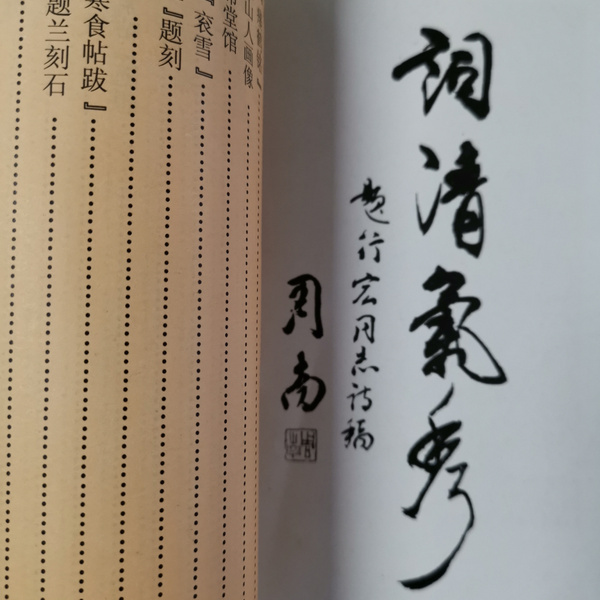 詞清氣秀
题行宏同志诗稿
周南
山人画像
堂馆
『衮雪』
』题刻
寒食帖跋』
题兰刻石